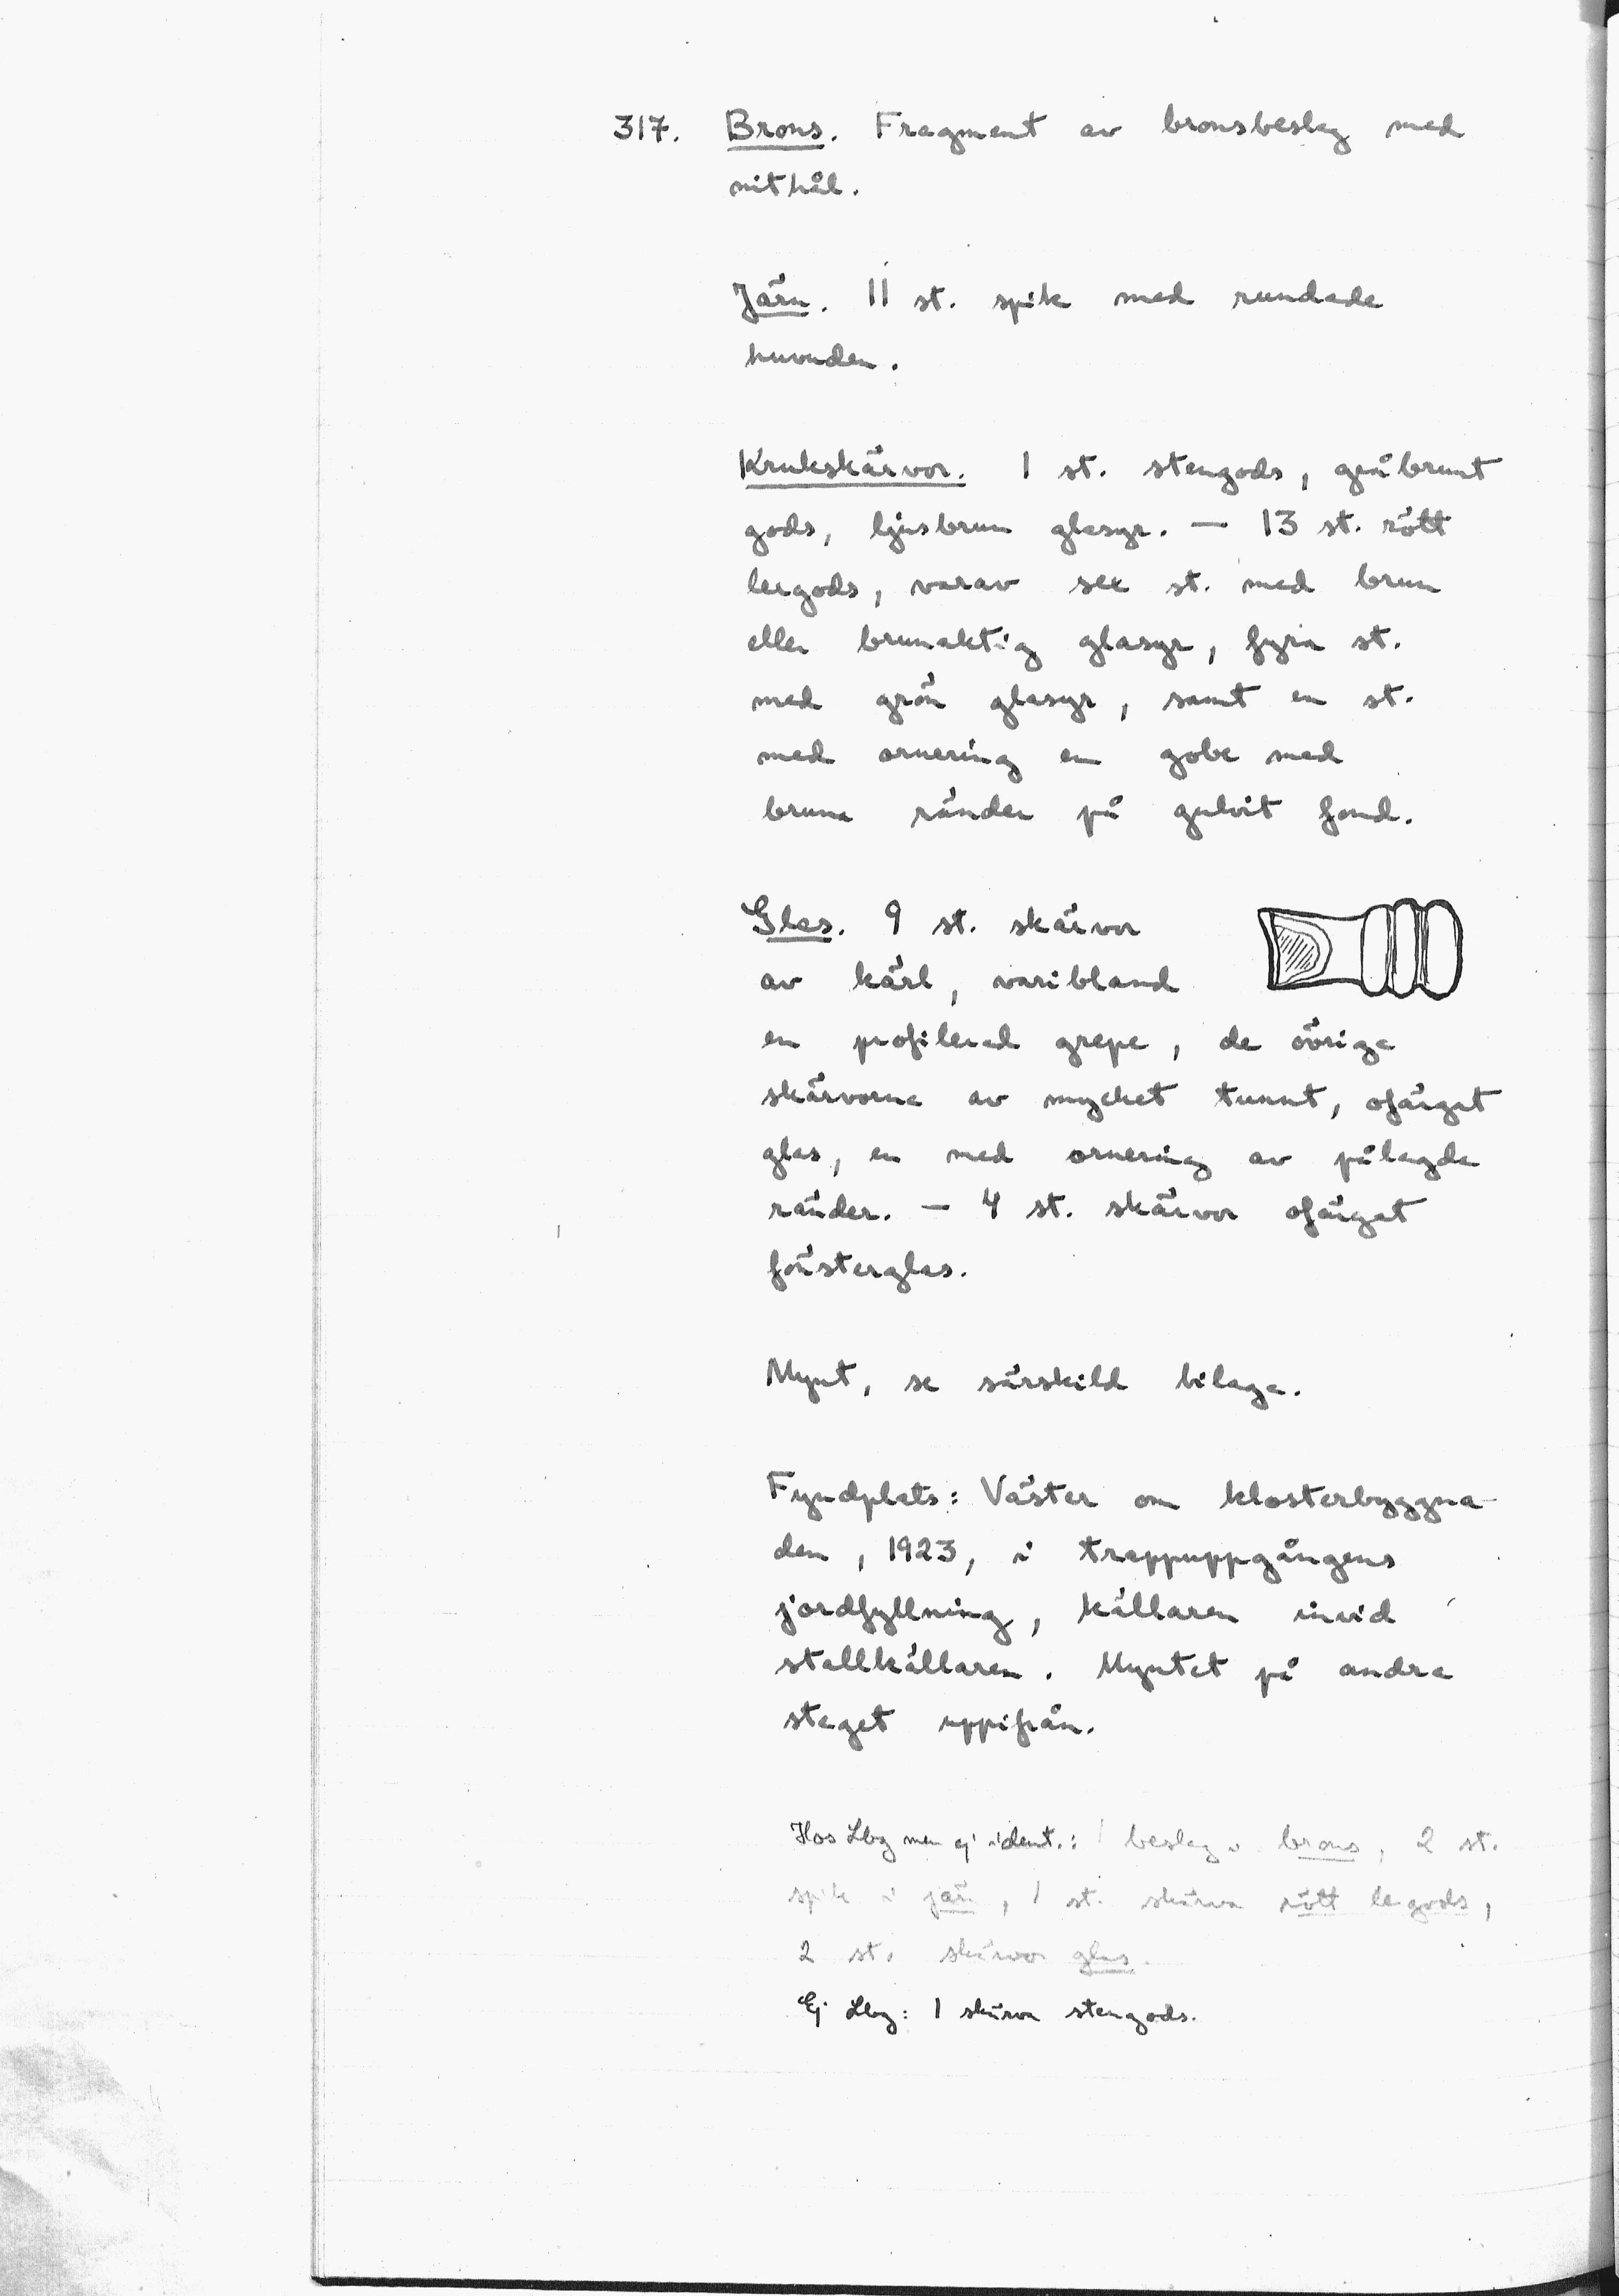 317. Brons. Fragment av bronsbeslag med
nithål.
Järn. 11 st. spik med rundade
huvuden.
Krukskärvor. 1 st. stengods, gråbrunt
gods, ljusbrun glasyr. — 13 st. rött
lergods, varav sex st. med brun
eller brunaktig glasyr, fyra st.
med grön glasyr, samt en st.
med ornering en gobe med
bruna ränder på gulvit fond.
Glas. 9 st. skärvor
av kärl, varibland
en profilerad grepe, de övriga
skärvorna av mycket tunnt, ofärgat
glas, en med ornering av pålagda
ränder. — 4 st. skärvor ofärgat
fönsterglas.
Mynt, se särskild bilaga.
Fyndplats: Väster om klosterbyggna-
den, 1923, i trappuppgångens
jordfyllning, källaren invid
stallkällaren. Myntet på andra
steget uppifrån.
Hos Lbg men ej ident.: 1 beslag i brons, 2 st.
spik i järn, 1 st. skärva rött lergods,
2 st. skärvor glas.
Ej Lbg: 1 skärva stengods.